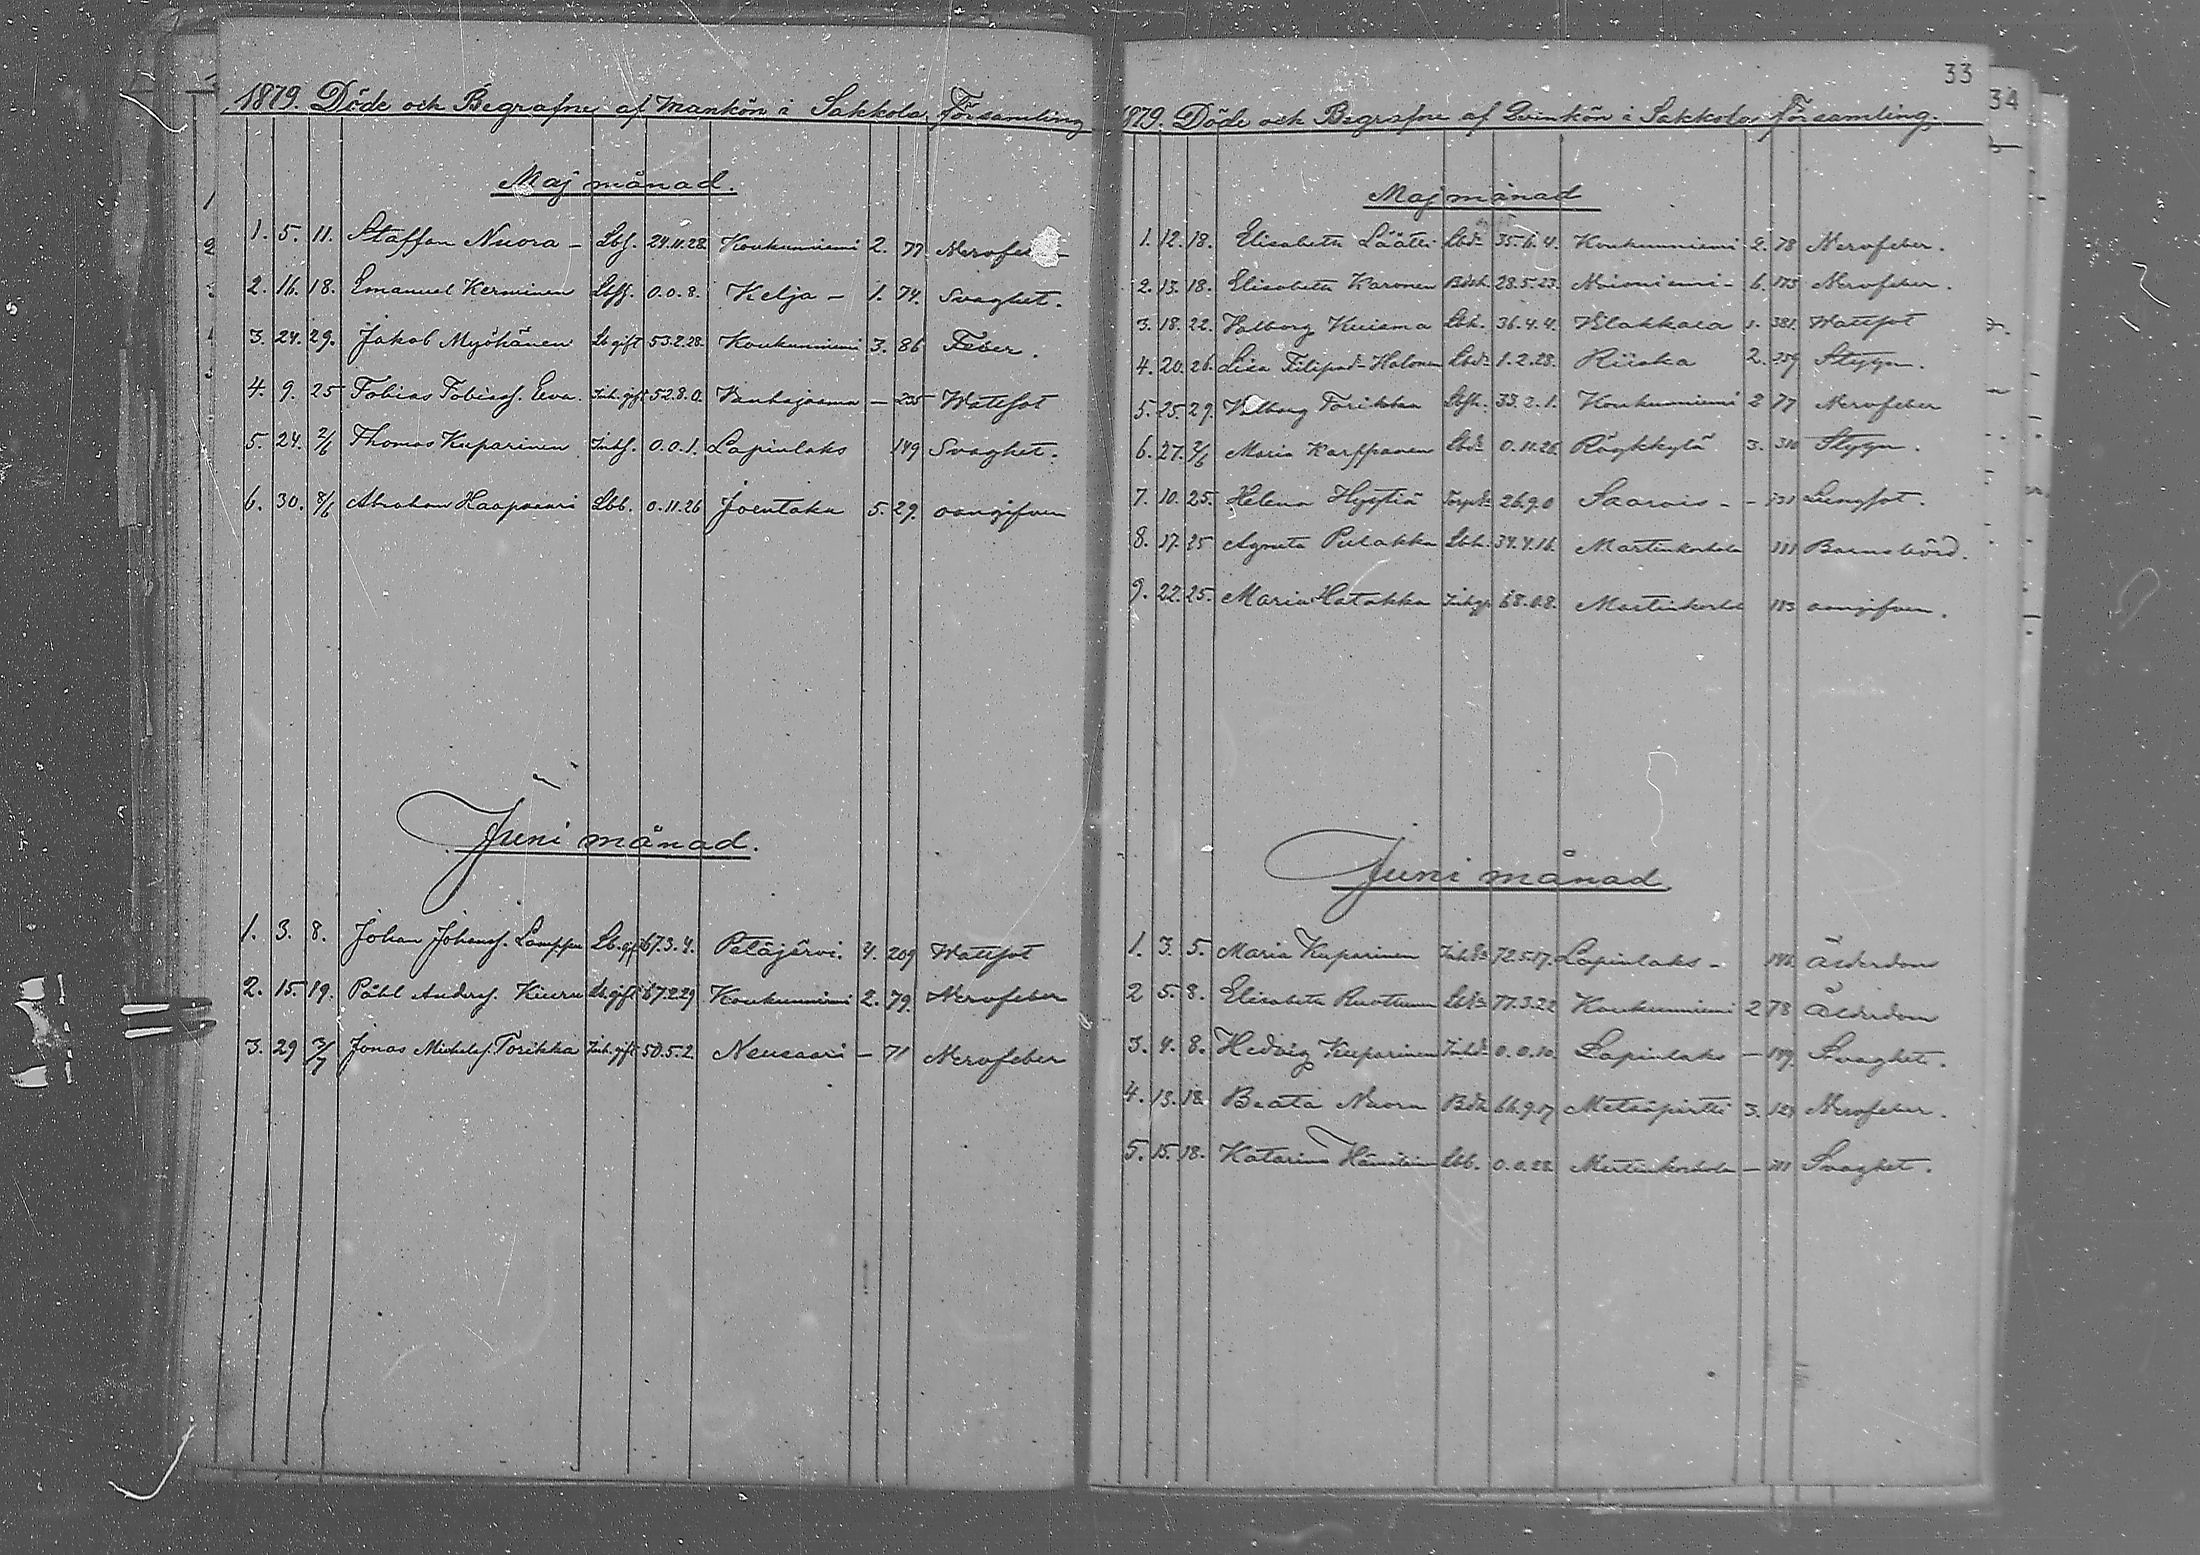 1879. Döde och Begrafne af Mankön i Sakkola Församling
Maj månad.
1. 5. 11. Staffan Nuora - Lbs. 24.11.28. Koukunniemi 2. 77 Nervfeber
2. 16. 18. Emanuel Kerminen 0.0.8. Kelja - 1. 74. Svaghet.
3. 24. 29. Jakob Myöhänen Lb gift 53.2.28. Koukunniemi 3. 86 Feber.
4. 9. 25 Tobias Tobiass. Eva. Inh. gift 52.8.0. Vanhajaama - 235 Wattsot
5. 24. 2/6 Thomas Kuparinen Inhs. 0.0.1. Lapinlaks 149 Svaghet.
6. 30. 8/6 Abraham Haapsaari Lbb. 0.11.26 Joentaka 5. 29. oangifven
Juni månad.
1. 3. 8. Johan Johanss. Lamppu Lb. gift 67.3.4. Petäjärvi. 4. 209 Wattsot
2. 15. 19. Påhl Anderss. Kiuru Lb gift 67.2.29 Koukunniemi 2. 79. Nervfeber
3. 29 3/7 Jonas Michelss. Torikka Inh. gift 50.5.2. Neusaari - 71 Nervfeber
33
34
1879. Döde och Begrafne af Qvinkön i Sakkola Församling.
Maj månad
1. 12. 18. Elisabeth Läätti 35.6.4. Koukunniemi 2. 78 Nervfeber.
2. 13. 18. Elisabeth Karonen 28.5.23. Noisniemi - 6. 175 Nervfeber.
3. 18. 22. Valborg Kuisma Lbh. 36.4.4. Vilakkala 1. 381. Wattsot
4. 20. 26. Lisa Filipsd. Halonen Lbdr 1.2.28. Riiska 2. 259 Stygn.
5. 25. 29. Valborg Torikka 33.2.1. Koukunniemi 2 77 Nervfeber
6. 27. 2/6 Maria Karppanen Lbdr 0.11.26. Röykkylä 3. 310 Stygn.
7. 10. 25. Helena Hyytiä 26.9.0 Saarois - - 131 Lungsot.
8. 17. 25 Agneta Pulakka Lbh. 34.4.16. Martinkorhola 111 Barnsbörd.
9. 22. 25. Maria Hatakka 68.0.8. Martinkorhola 113 oangifven.
Juni månad
1. 3. 5. Maria Kuparinen 72.5.17. Lapinlaks - 146 Ålderdom
2 5. 8. Elisabeth Ruottinen 77.3.22 Koukunniemi 2 78 Ålderdom
3. 4. 8. Hedvig Kuparinen 0.0.10. Lapinlaks - 149. Svaghet.
4. 13. 18. Beata Nuora 66.9.17 Metsäpirtti 3. 129 Nervfeber.
5. 15. 18. Katarina Hämäläinen Lbb. 0.0.28. Martinkorhola - 111 Svaghet.